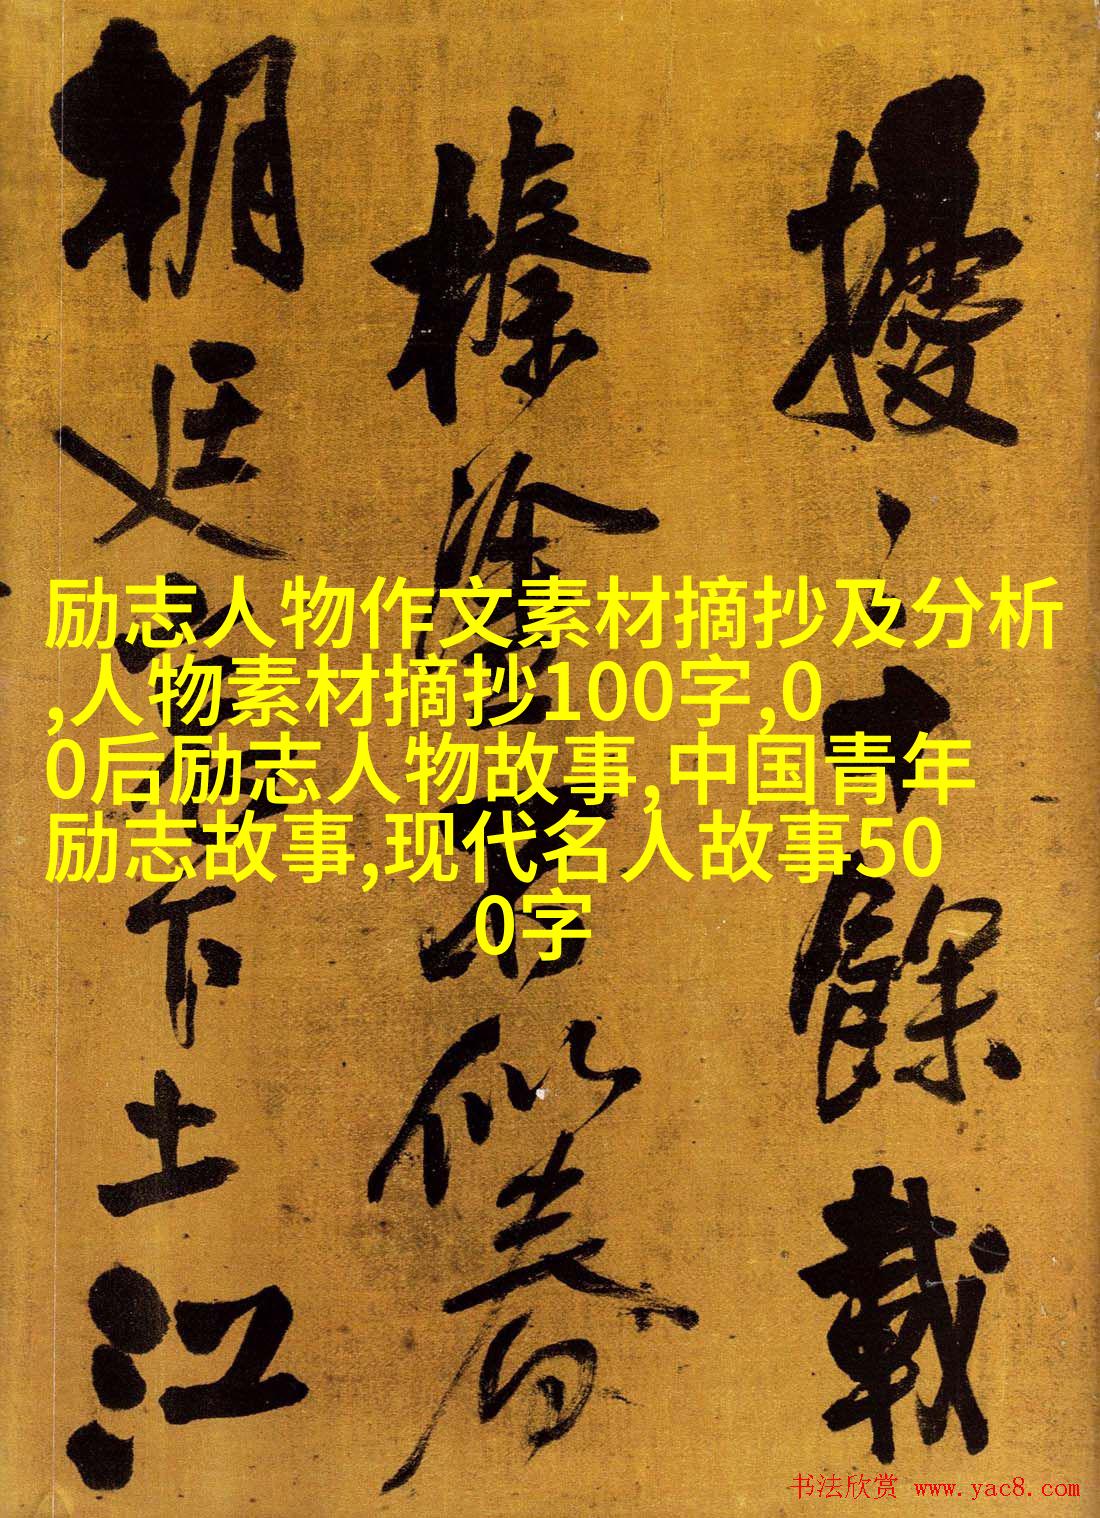 励志人物作文素材摘抄及分析
,人物素材摘抄100字,0
0后励志人物故事,中国青年
励志故事,现代名人故事50
0字
擾十餘載
榛塗
朝廷下土江
书法欣赏 www.yac8.com